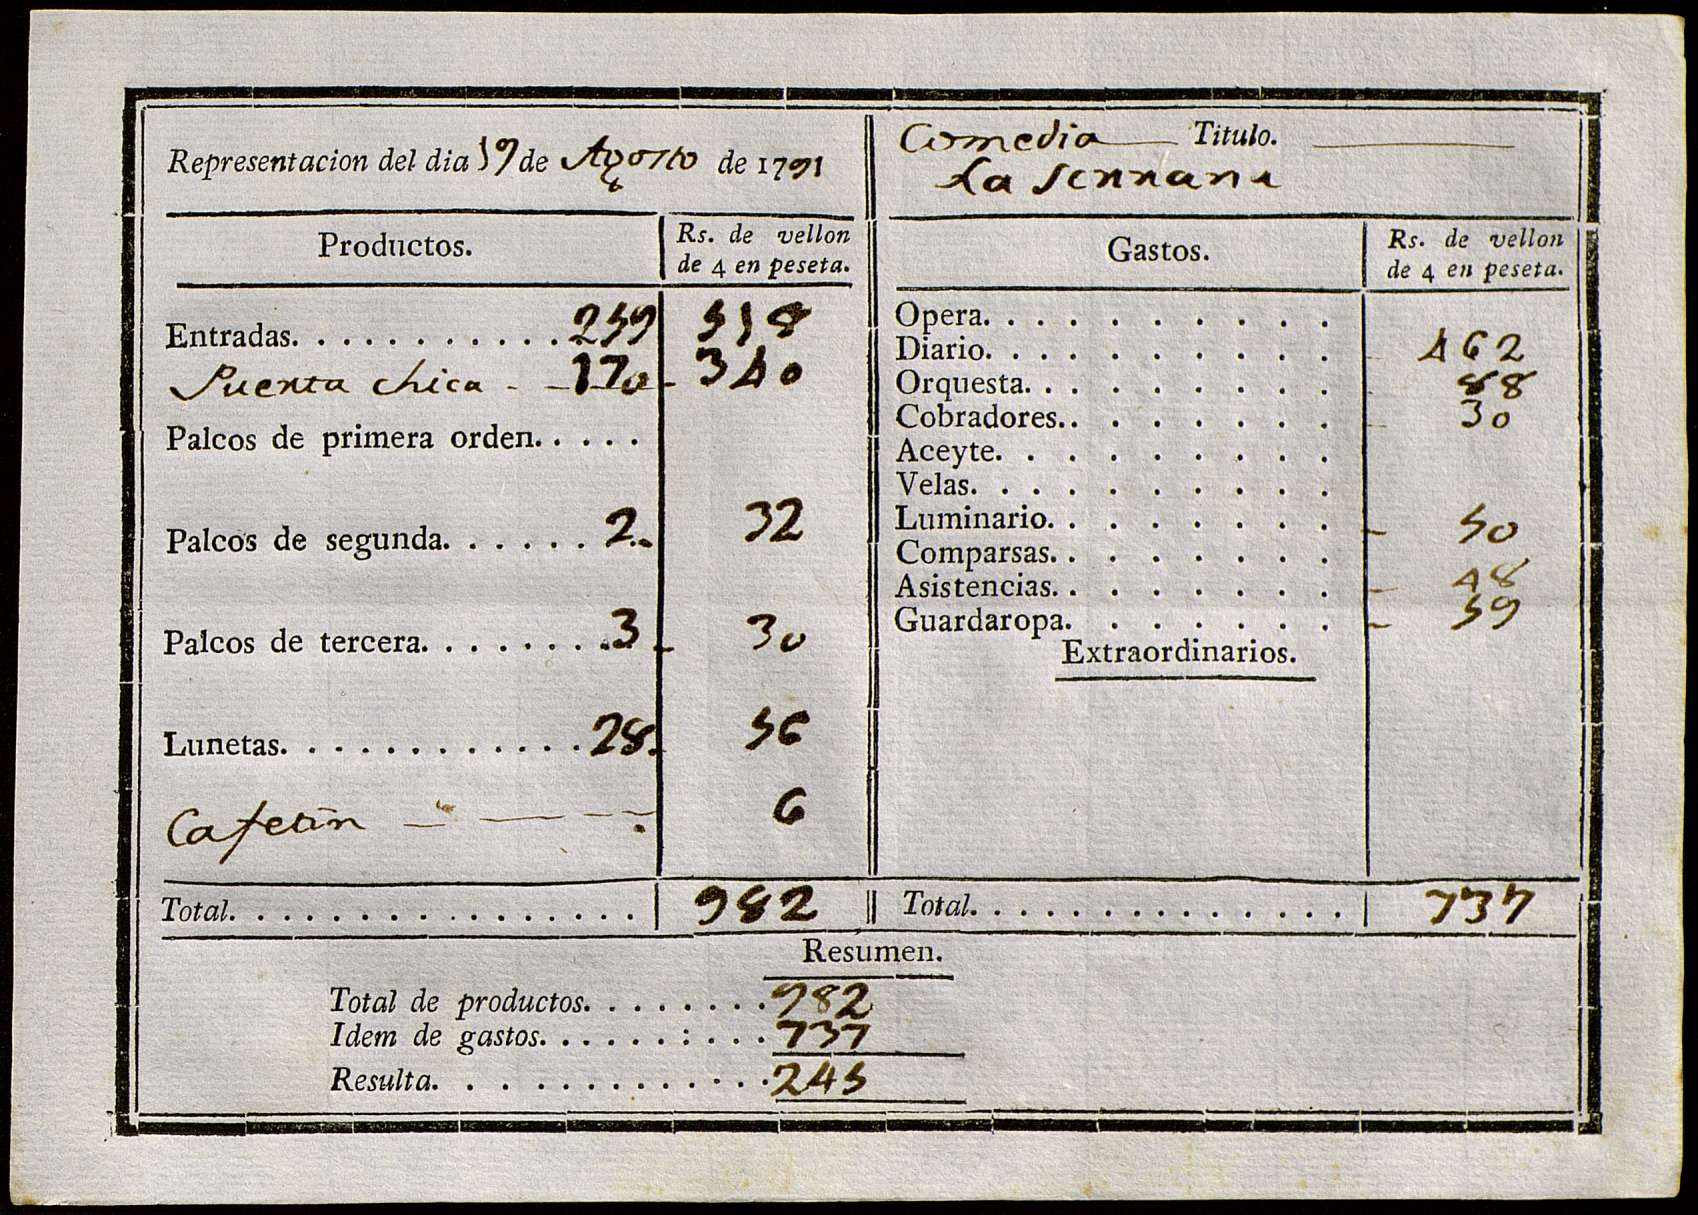 Representacion del dia 19 de Agosto de 1791
Comedia Titulo.
La Serrana
Productos. Rs. de vellon de 4 en peseta.
Entradas. . . . . . . . . . . . 259 518
Puerta chica - - 170 - 340
Palcos de primera orden. . . . .
Palcos de segunda. . . . . . 2. 32
Palcos de tercera. . . . . . . . 3 - 30
Lunetas. . . . . . . . . . . . . 28. 56
Cafetin — — - - 6
Total. . . . . . . . . . . . . . . . 982
Gastos. Rs. de vellon de 4 en peseta.
Opera. . . . . . . . . .
Diario. . . . . . . . . . 462
Orquesta. . . . . . . . . 88
Cobradores.. . . . . . . 30
Aceyte. . . . . . . . . .
Velas. . . . . . . . . . .
Luminario. . . . . . . . - 50
Comparsas. . . . . . . .
Asistencias. . . . . . . . - 48
Guardaropa. . . . . . . - 59
Extraordinarios.
Total. . . . . . . . . . . . . . 737
Resumen.
Total de productos. . . . . . . . 982
Idem de gastos. . . . . . : . . . 737
Resulta. . . . . . . . . . . . . . 245